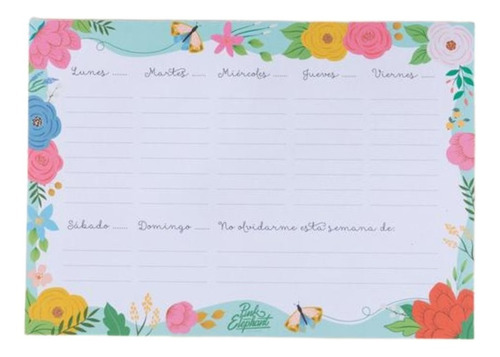 Lunes ...... Martes ...... Miércoles ...... Jueves ...... Viernes ......
Sábado ...... Domingo ...... No olvidarme esta semana de:
Pink Elephant